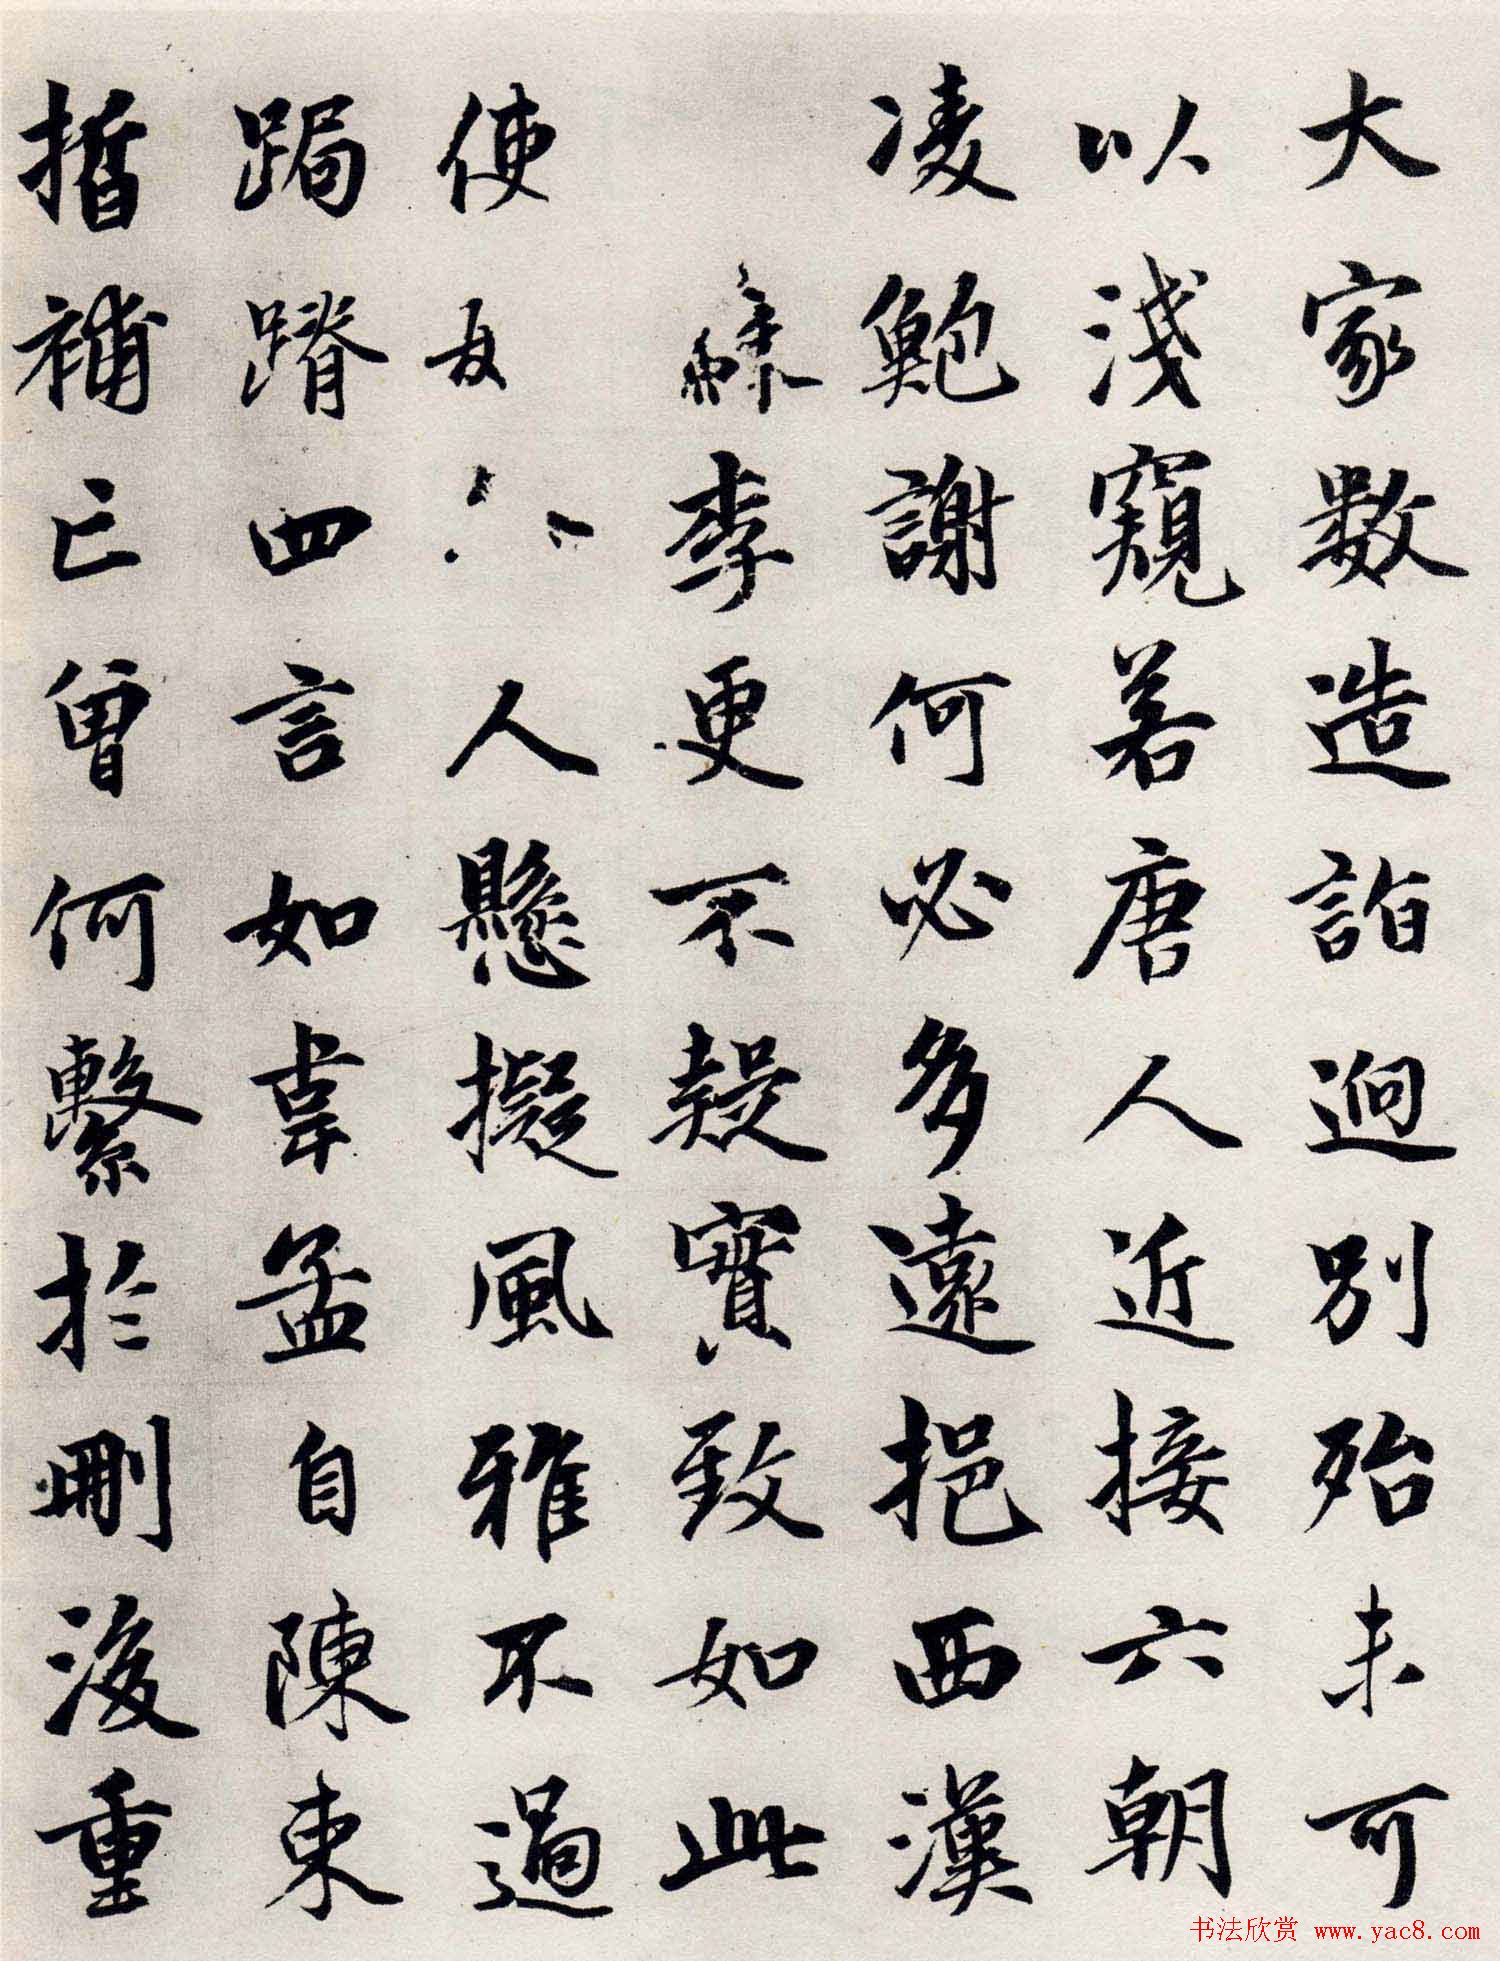 大家數造詣迥別殆未可
以淺窺若唐人近接六朝
凌鮑謝何必多遠挹西漢
李更不疑寶致如此
使人懸擬風雅不過
跼蹐四言如韋孟自陳束
晳補亡曾何繫於刪後重
书法欣赏 www.yac8.com